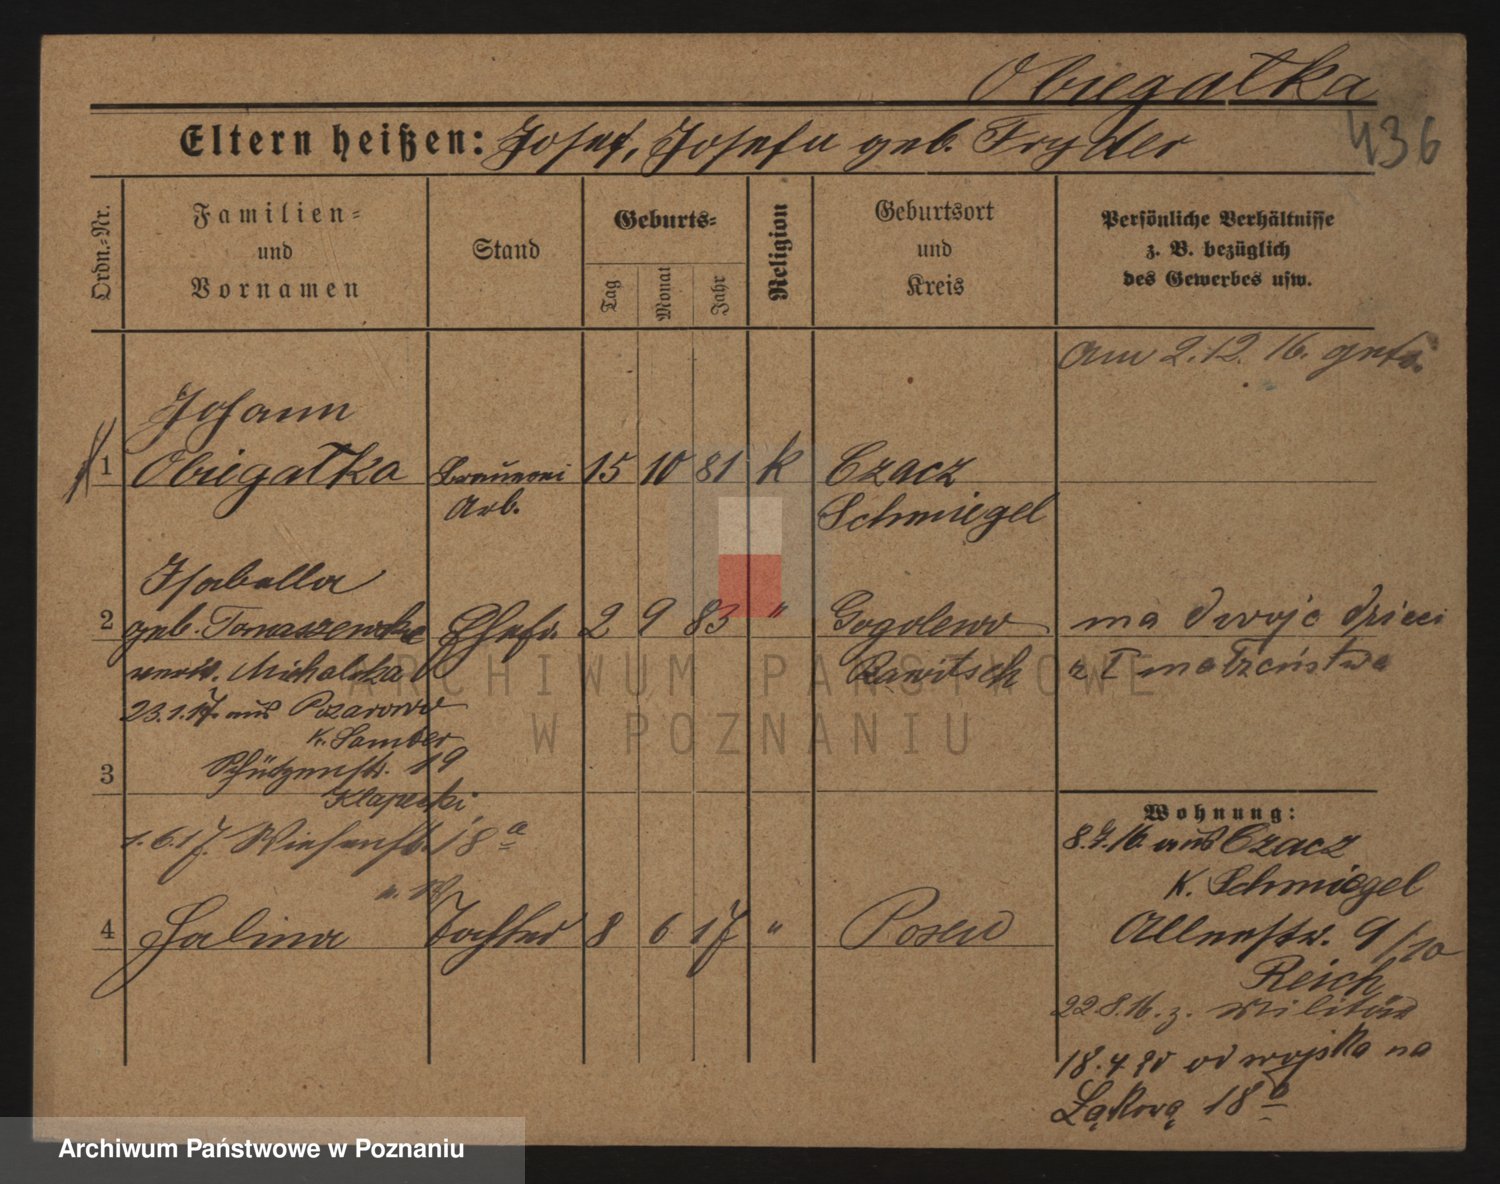 Obiegałka
436
Eltern heißen: Josef, Josefa geb. Fryder
Ordn.-Nr.
Familien-
und
Vornamen
Stand
Geburts-
Tag
Monat
Jahr
Religion
Geburtsort
und
Kreis
Persönliche Verhältnisse
z. B. bezüglich
des Gewerbes usw.
am 2.12.16. getr.
Johann
1 Obiegałka Brauerei 15 10 81 k Czacz
Arb. Schmiegel
Isabella
2 geb. Tomaszewska Ehefr. 2 9 83 " Gogolewo ma dwoje dzieci
verw. Michalska Rawitsch z I małżeństwa
23.1.17 aus Pozarowo
K. Samter
3 Schützenstr. 19
Klapecki
1.6.17. Wiesenstr. 18 a
4 Halina Tochter 8 6 17 " Posen
Wohnung:
8.7.16. aus Czacz
K. Schmiegel
Allerstr. 9/10
Reich
22.8.16. z. Militär
18.4.20 od wojska na
Łąkową 18 a
ARCHIWUM PAŃSTWOWE
W POZNANIU
Archiwum Państwowe w Poznaniu